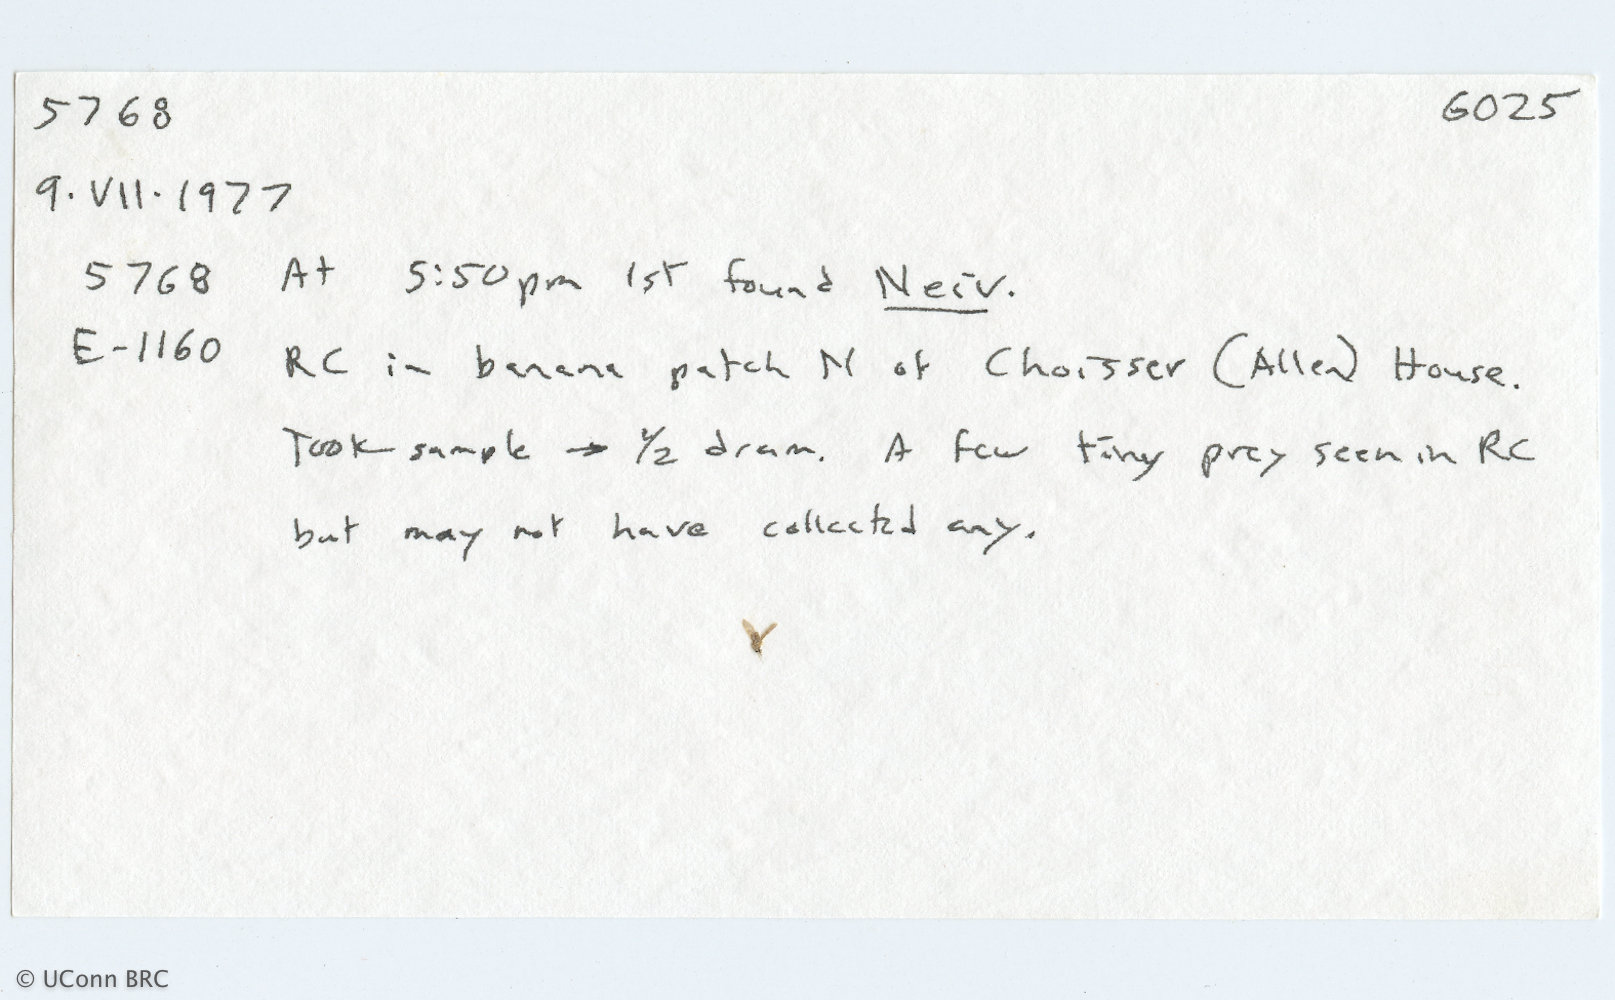 5768 6025
9.VII.1977
5768 At 5:50pm 1st found Neiv.
E-1160 RC in banana patch N of Choisser (Allen) House.
Took sample → 1/2 dram. A few tiny prey seen in RC
but may not have collected any.
© UConn BRC